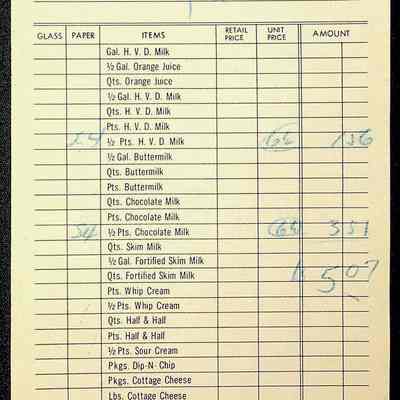 GLASS PAPER ITEMS RETAIL PRICE UNIT PRICE AMOUNT
Gal. H. V. D. Milk
½ Gal. Orange Juice
Qts. Orange Juice
½ Gal. H. V. D. Milk
Qts. H. V. D. Milk
Pts. H. V. D. Milk
24 ½ Pts. H. V. D. Milk 6½ 156
½ Gal. Buttermilk
Qts. Buttermilk
Pts. Buttermilk
Qts. Chocolate Milk
Pts. Chocolate Milk
54 ½ Pts. Chocolate Milk 6½ 351
Qts. Skim Milk
½ Gal. Fortified Skim Milk
Qts. Fortified Skim Milk 5.07
Pts. Whip Cream
½ Pts. Whip Cream
Qts. Half & Half
Pts. Half & Half
½ Pts. Sour Cream
Pkgs. Dip-N-Chip
Pkgs. Cottage Cheese
Lbs. Cottage Cheese